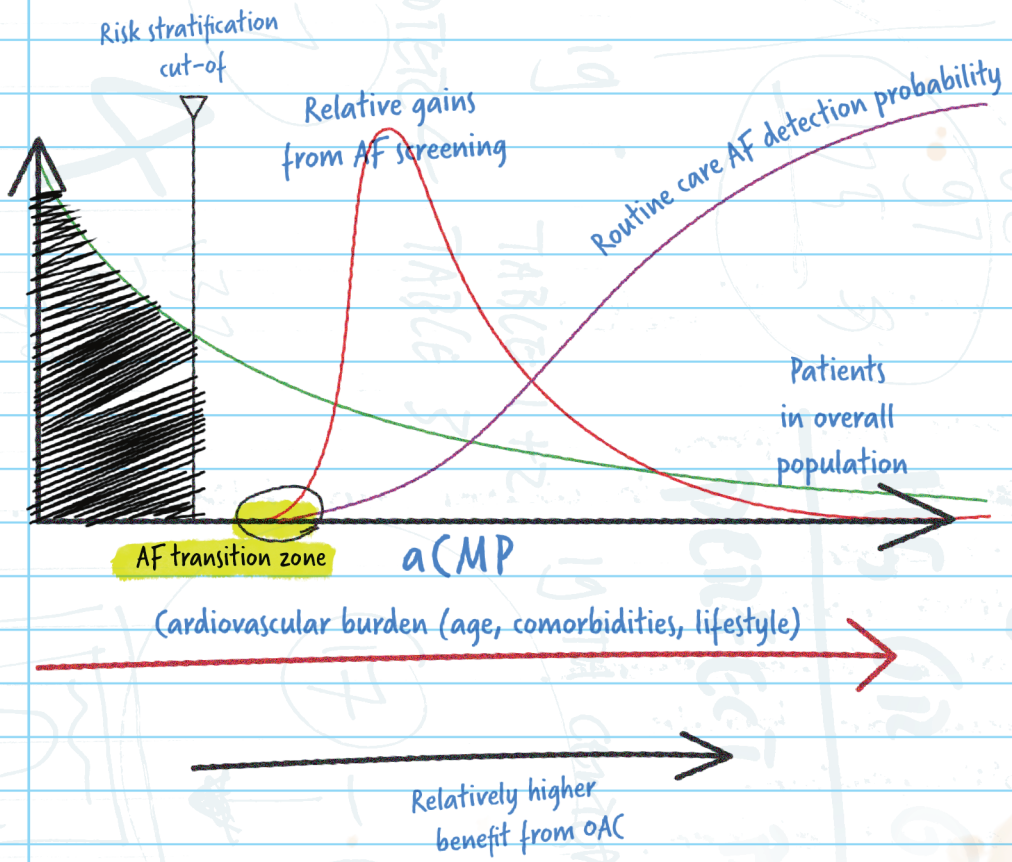 Risk stratification
cut-of
Relative gains
from AF screening
Routine care AF detection probability
Patients
in overall
population
AF transition zone
aCMP
Cardiovascular burden (age, comorbidities, lifestyle)
Relatively higher
benefit from OAC